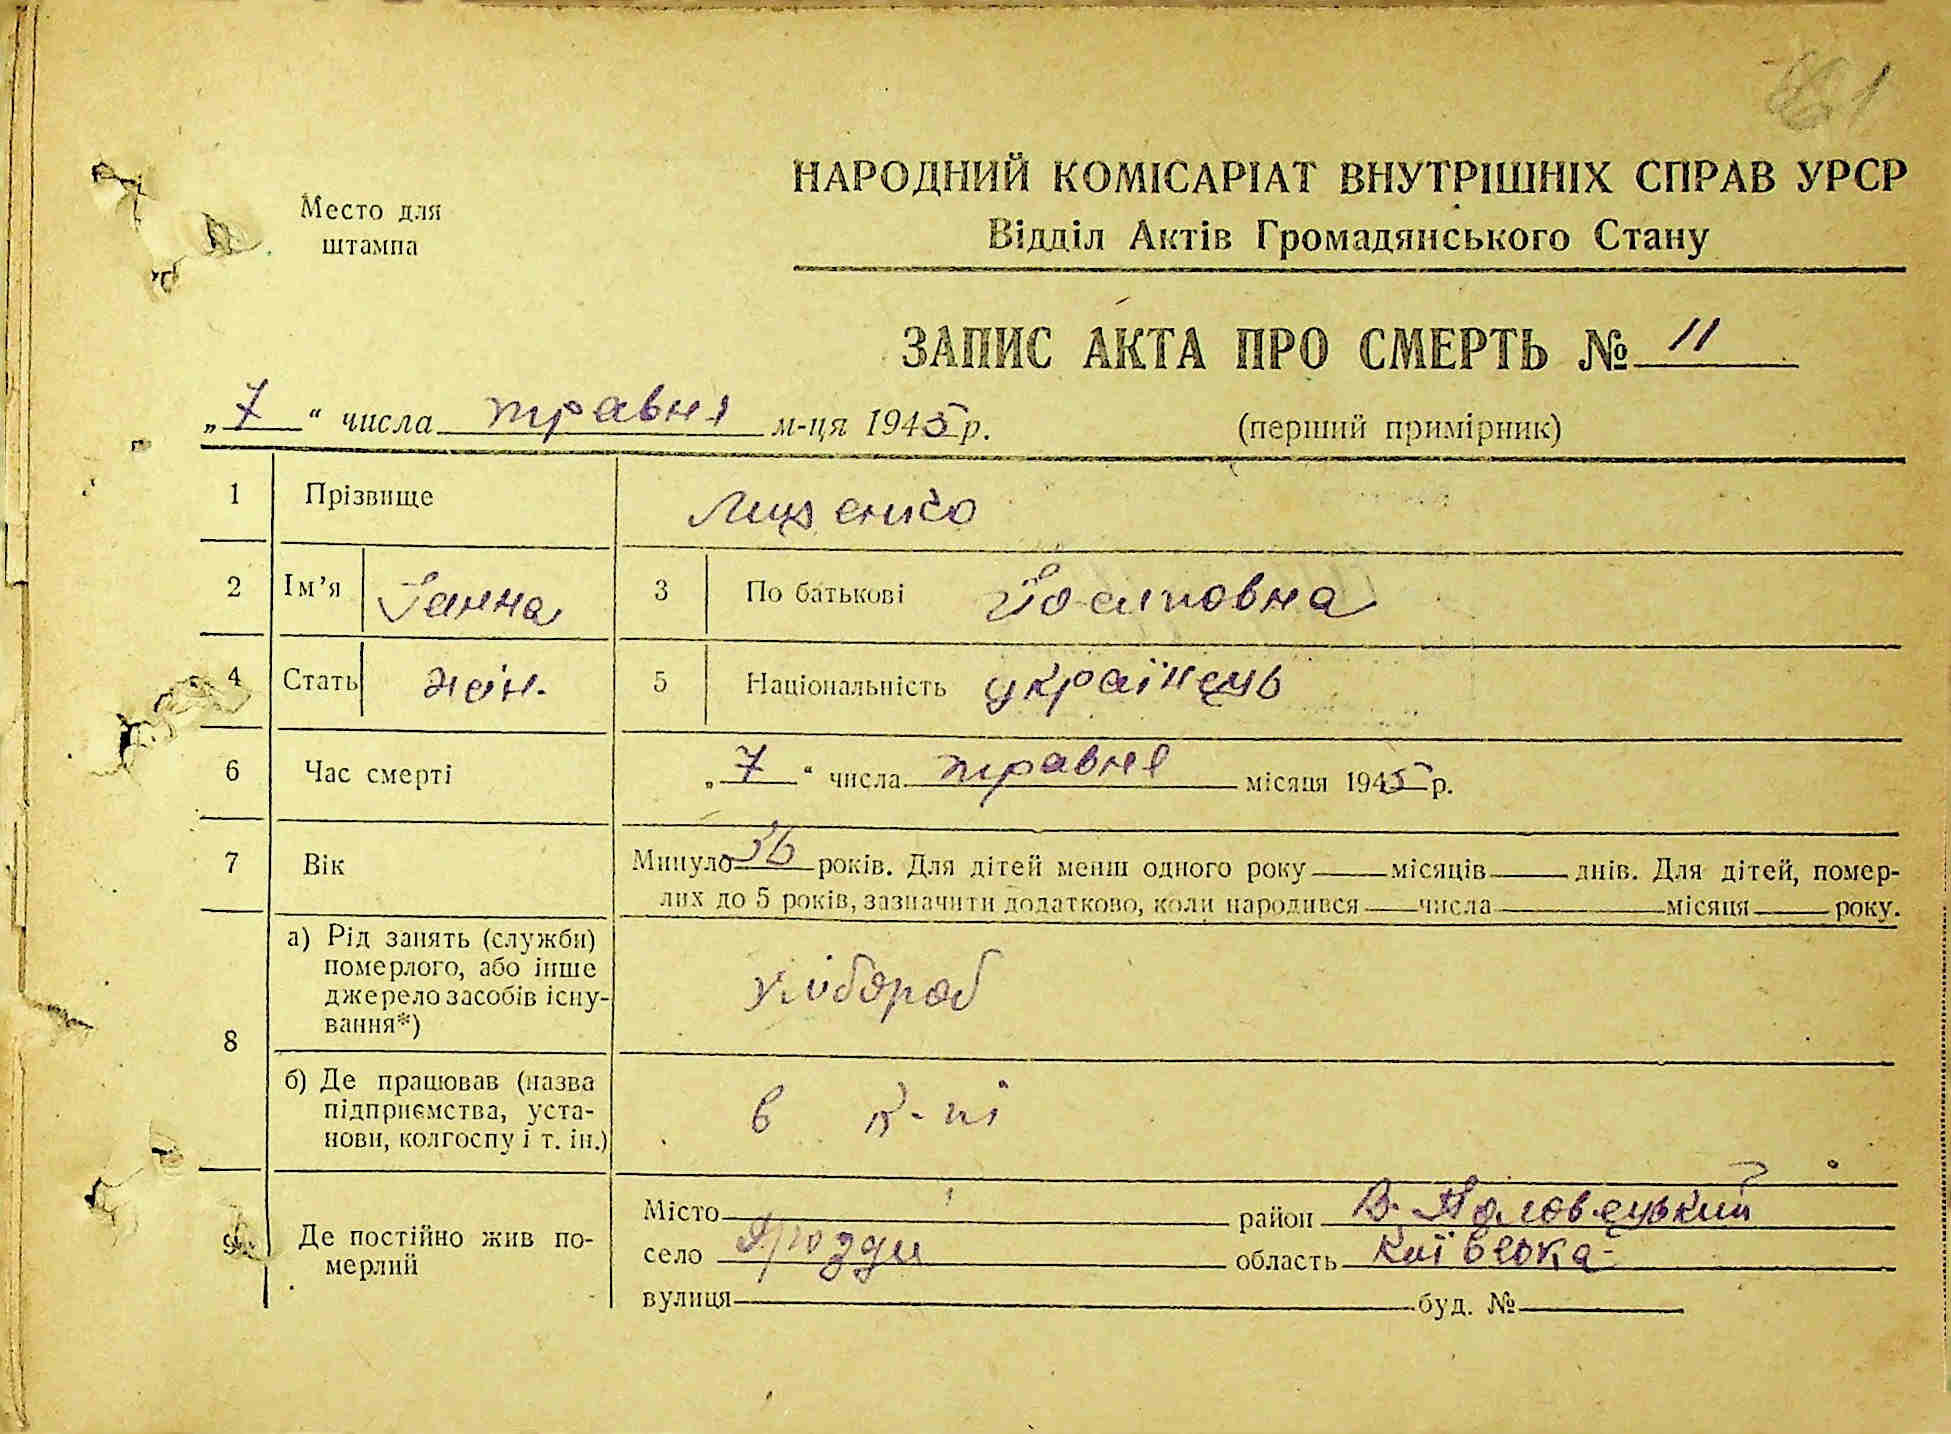 1
Место для
штампа
НАРОДНИЙ КОМІСАРІАТ ВНУТРІШНІХ СПРАВ УРСР
Відділ Актів Громадянського Стану
ЗАПИС АКТА ПРО СМЕРТЬ № 11
„7“ числа травня м-ця 1945 р. (перший примірник)
1 Прізвище Лищенко
2 Ім’я Ганна 3 По батькові Йосиповна
4 Стать жін. 5 Національність українець
6 Час смерті „7“ числа травня місяця 1945 р.
7 Вік Минуло 36 років. Для дітей менш одного року місяців днів. Для дітей, помер-
лих до 5 років, зазначити додатково, коли народився числа місяця року.
8 а) Рід занять (служби)
померлого, або інше
джерело засобів існу-
вання*)
хлібороб
б) Де працював (назва
підприємства, уста-
нови, колгоспу і т. ін.)
в к-пі
9 Де постійно жив по-
мерлий
Місто район В. Половецький
село Дрозди область Київська
вулиця буд. №